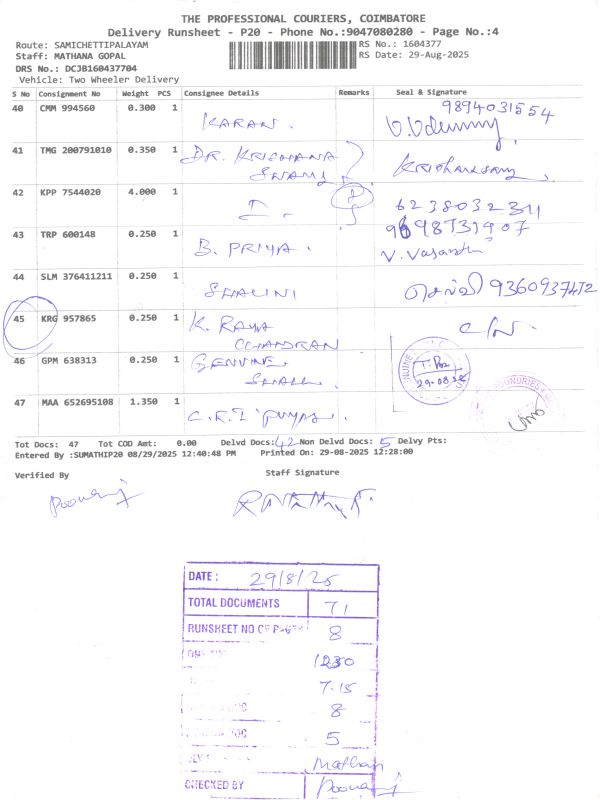 THE PROFESSIONAL COURIERS, COIMBATORE
Delivery Runsheet - P20 - Phone No.:9047080280 - Page No.:4
Route: SAMICHETTIPALAYAM RS No.: 1604377
Staff: MATHANA GOPAL RS Date: 29-Aug-2025
DRS No.: DCJB160437704
Vehicle: Two Wheeler Delivery
S No Consignment No Weight PCS Consignee Details Remarks Seal & Signature
40 CMM 994560 0.300 1 KARAN. 9894031554
41 TMG 200791010 0.350 1 DR. KRISHANA SWAMY
42 KPP 7544020 4.000 1 6238032341
43 TRP 600148 0.250 1 B. PRIYA. V. Vasantha
44 SLM 376411211 0.250 1 SHALINI செல்வி 9360937472
45 KRG 957865 0.250 1 K. RAYA CHANDRAN
46 GPM 638313 0.250 1 GENUINE SHALL T. 29.08.25
47 MAA 652695108 1.350 1 C.R.I
Tot Docs: 47 Tot COD Amt: 0.00 Delvd Docs: 42 Non Delvd Docs: 5 Delvy Pts:
Entered By :SUMATHIP20 08/29/2025 12:40:48 PM Printed On: 29-08-2025 12:28:00
Verified By Staff Signature
Poovaraj
DATE : 29/8/25
TOTAL DOCUMENTS 71
RUNSHEET NO OF 8
1230
7.15
8
5
Mathan
CHECKED BY Poovaraj